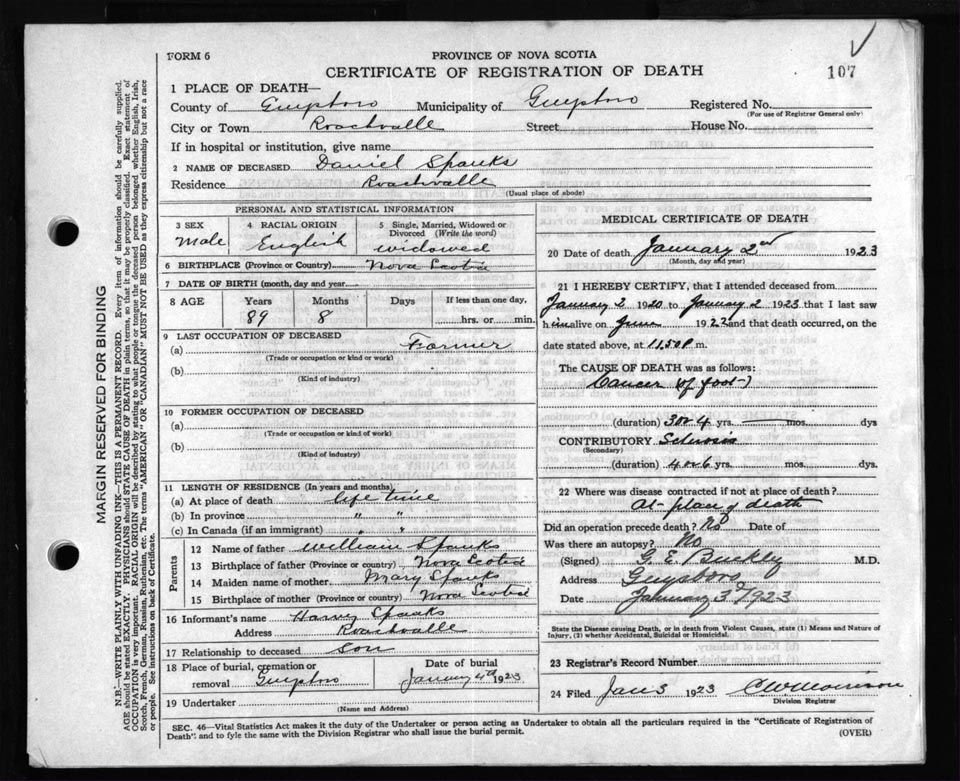 FORM 6
PROVINCE OF NOVA SCOTIA
CERTIFICATE OF REGISTRATION OF DEATH
107
1 PLACE OF DEATH—
County of Guysboro Municipality of Guysboro Registered No.
(For use of Registrar General only)
City or Town Roachvalle Street House No.
If in hospital or institution, give name
2 NAME OF DECEASED Daniel Spanks
Residence Roachvalle
(Usual place of abode)
PERSONAL AND STATISTICAL INFORMATION
3 SEX 4 RACIAL ORIGIN 5 Single, Married, Widowed or Divorced (Write the word)
Male English widowed
6 BIRTHPLACE (Province or Country) Nova Scotia
7 DATE OF BIRTH (month, day and year)
8 AGE Years Months Days If less than one day,
89 8 hrs. or min.
9 LAST OCCUPATION OF DECEASED
(a) Farmer
(Trade or occupation or kind of work)
(b)
(Kind of industry)
10 FORMER OCCUPATION OF DECEASED
(a)
(Trade or occupation or kind of work)
(b)
(Kind of industry)
11 LENGTH OF RESIDENCE (In years and months)
(a) At place of death life time
(b) In province " "
(c) In Canada (if an immigrant)
Parents
12 Name of father William Spanks
13 Birthplace of father (Province or country) Nova Scotia
14 Maiden name of mother Mary Spanks
15 Birthplace of mother (Province or country) Nova Scotia
16 Informant's name Harvy Spanks
Address Roachvalle
17 Relationship to deceased Son
18 Place of burial, cremation or removal Guysboro
Date of burial
January 4th 1923
19 Undertaker
(Name and Address)
MEDICAL CERTIFICATE OF DEATH
20 Date of death January 2nd 1923
(Month, day and year)
21 I HEREBY CERTIFY, that I attended deceased from
January 2 1920 to January 2 1923 that I last saw
him alive on June 1922 and that death occurred, on the
date stated above, at 11.50 P m.
The CAUSE OF DEATH was as follows:
Cancer of foot
(duration) 3 or 4 yrs. mos. dys
CONTRIBUTORY Sclerosis
(Secondary)
(duration) 4 or 6 yrs. mos. dys.
22 Where was disease contracted if not at place of death?
At place of death
Did an operation precede death? No Date of
Was there an autopsy? No
(Signed) G. E. Buckly M.D.
Address Guysboro
Date January 3d 1923
State the Disease causing Death, or in death from Violent Causes, state (1) Means and Nature of
Injury, (2) whether Accidental, Suicidal or Homicidal.
23 Registrar's Record Number
24 Filed Jan 3 1923 C W Morrison
Division Registrar
SEC. 46—Vital Statistics Act makes it the duty of the Undertaker or person acting as Undertaker to obtain all the particulars required in the "Certificate of Registration of
Death": and to fyle the same with the Division Registrar who shall issue the burial permit.
(OVER)
MARGIN RESERVED FOR BINDING
N.B.—WRITE PLAINLY WITH UNFADING INK—THIS IS A PERMANENT RECORD. Every item of information should be carefully supplied.
AGE should be stated EXACTLY. PHYSICIANS should STATE CAUSE OF DEATH in plain terms, so that it may be properly classified. Exact statement of
OCCUPATION is very important. RACIAL ORIGIN will be described by stating to what people or tongue the deceased person belonged whether English, Irish,
Scotch, French, German, Russian, Ruthenian, etc. The terms "AMERICAN" OR "CANADIAN" MUST NOT BE USED as they express citizenship but not a race
or people. See instructions on back of Certificate.